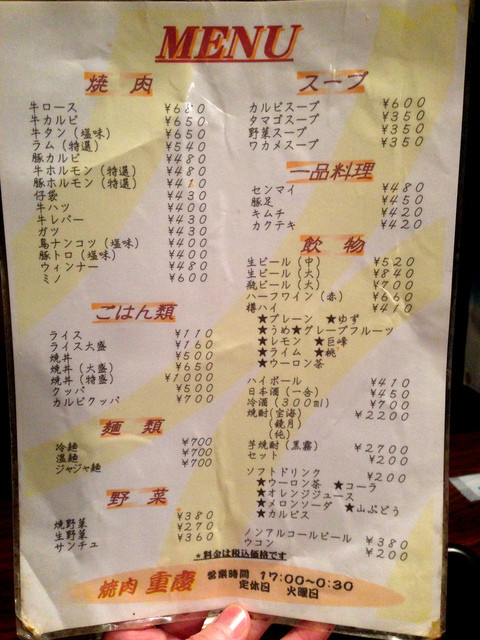 MENU
焼肉
牛ロース ¥680
牛カルビ ¥650
牛タン（塩味） ¥650
ラム（特選） ¥540
豚カルビ ¥480
牛ホルモン（特選） ¥480
豚ホルモン（特選） ¥410
仔袋 ¥430
牛ハツ ¥400
牛レバー ¥430
ガツ ¥430
鳥ナンコツ（塩味） ¥400
豚トロ（塩味） ¥400
ウィンナー ¥480
ミノ ¥600
ごはん類
ライス ¥110
ライス大盛 ¥160
焼丼 ¥500
焼丼（大盛） ¥650
焼丼（特盛） ¥1000
クッパ ¥500
カルビクッパ ¥700
麺類
冷麺 ¥700
温麺 ¥700
ジャジャ麺 ¥700
野菜
焼野菜 ¥380
生野菜 ¥270
サンチュ ¥360
スープ
カルビスープ ¥600
タマゴスープ ¥350
野菜スープ ¥350
ワカメスープ ¥350
一品料理
センマイ ¥480
豚足 ¥450
キムチ ¥420
カクテキ ¥420
飲物
生ビール（中） ¥520
生ビール（大） ¥840
瓶ビール（大） ¥700
ハーフワイン（赤） ¥660
樽ハイ ¥410
★プレーン ★ゆず
★うめ★グレープフルーツ
★レモン ★巨峰
★ライム ★桃
★ウーロン茶
ハイボール ¥410
日本酒（一合） ¥450
冷酒（300ml） ¥700
焼酎（宝海） ¥2200
（鏡月）
（純）
芋焼酎（黒霧） ¥2700
セット ¥200
ソフトドリンク ¥200
★ウーロン茶 ★コーラ
★オレンジジュース
★メロンソーダ ★山ぶどう
★カルピス
ノンアルコールビール ¥380
ウコン ¥200
★料金は税込価格です
焼肉 重慶 営業時間 17:00~0:30
定休日 火曜日